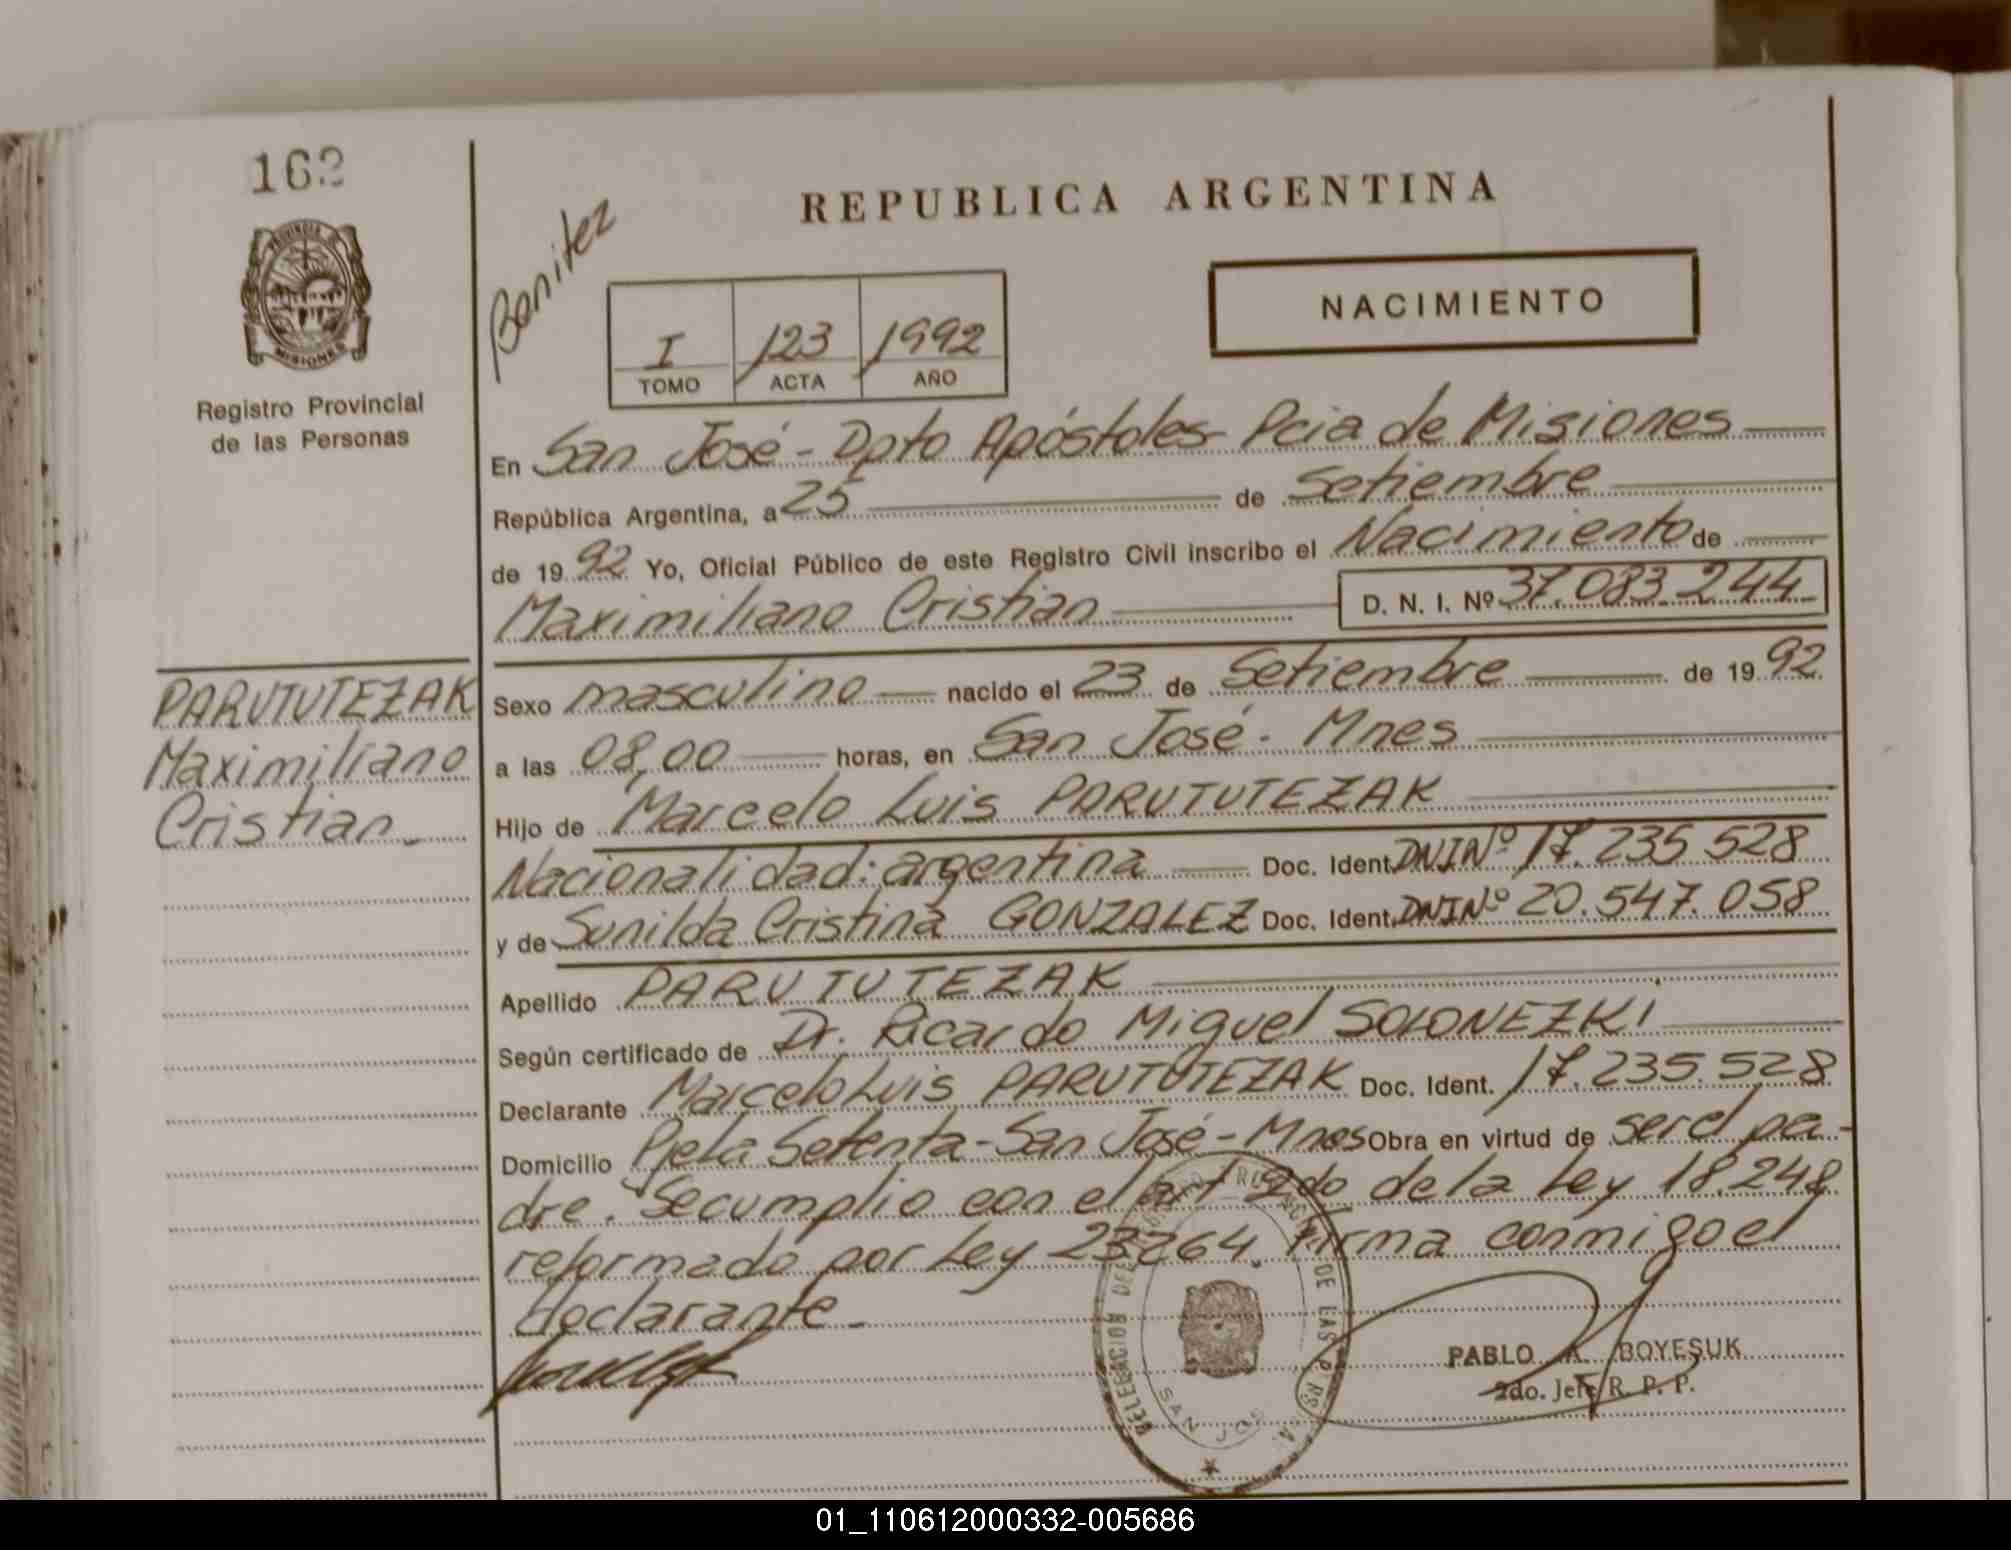 162
REPUBLICA ARGENTINA
Benitez
NACIMIENTO
I 123 1992
TOMO ACTA AÑO
PROVINCIA DE
MISIONES
Registro Provincial
de las Personas
En San José - Dpto Apóstoles - Pcia de Misiones
República Argentina, a 25 de Setiembre
de 1992 Yo, Oficial Público de este Registro Civil inscribo el Nacimiento de
Maximiliano Cristian D. N. I. Nº 37.083.244
PARUTUTEZAK
Maximiliano
Cristian
Sexo masculino nacido el 23 de Setiembre de 1992
a las 08,00 horas, en San José - Mnes
Hijo de Marcelo Luis PARUTUTEZAK
Nacionalidad: argentina Doc. Ident. DNINº 17.235.528
y de Sunilda Cristina GONZALEZ Doc. Ident. DNINº 20.547.058
Apellido PARUTUTEZAK
Según certificado de Dr. Ricardo Miguel SOLONEZKI
Declarante Marcelo Luis PARUTUTEZAK Doc. Ident. 17.235.528
Domicilio Pje La Setenta - San José - Mnes Obra en virtud de ser el pa-
dre. Se cumplio con el art 2do de la Ley 18.248
reformado por Ley 23264. Firma conmigo el
declarante.
DELEGACION DE LAS
SAN JOSE
PABLO A. BOYESUK
2do. Jefe R. P. P.
01_110612000332-005686